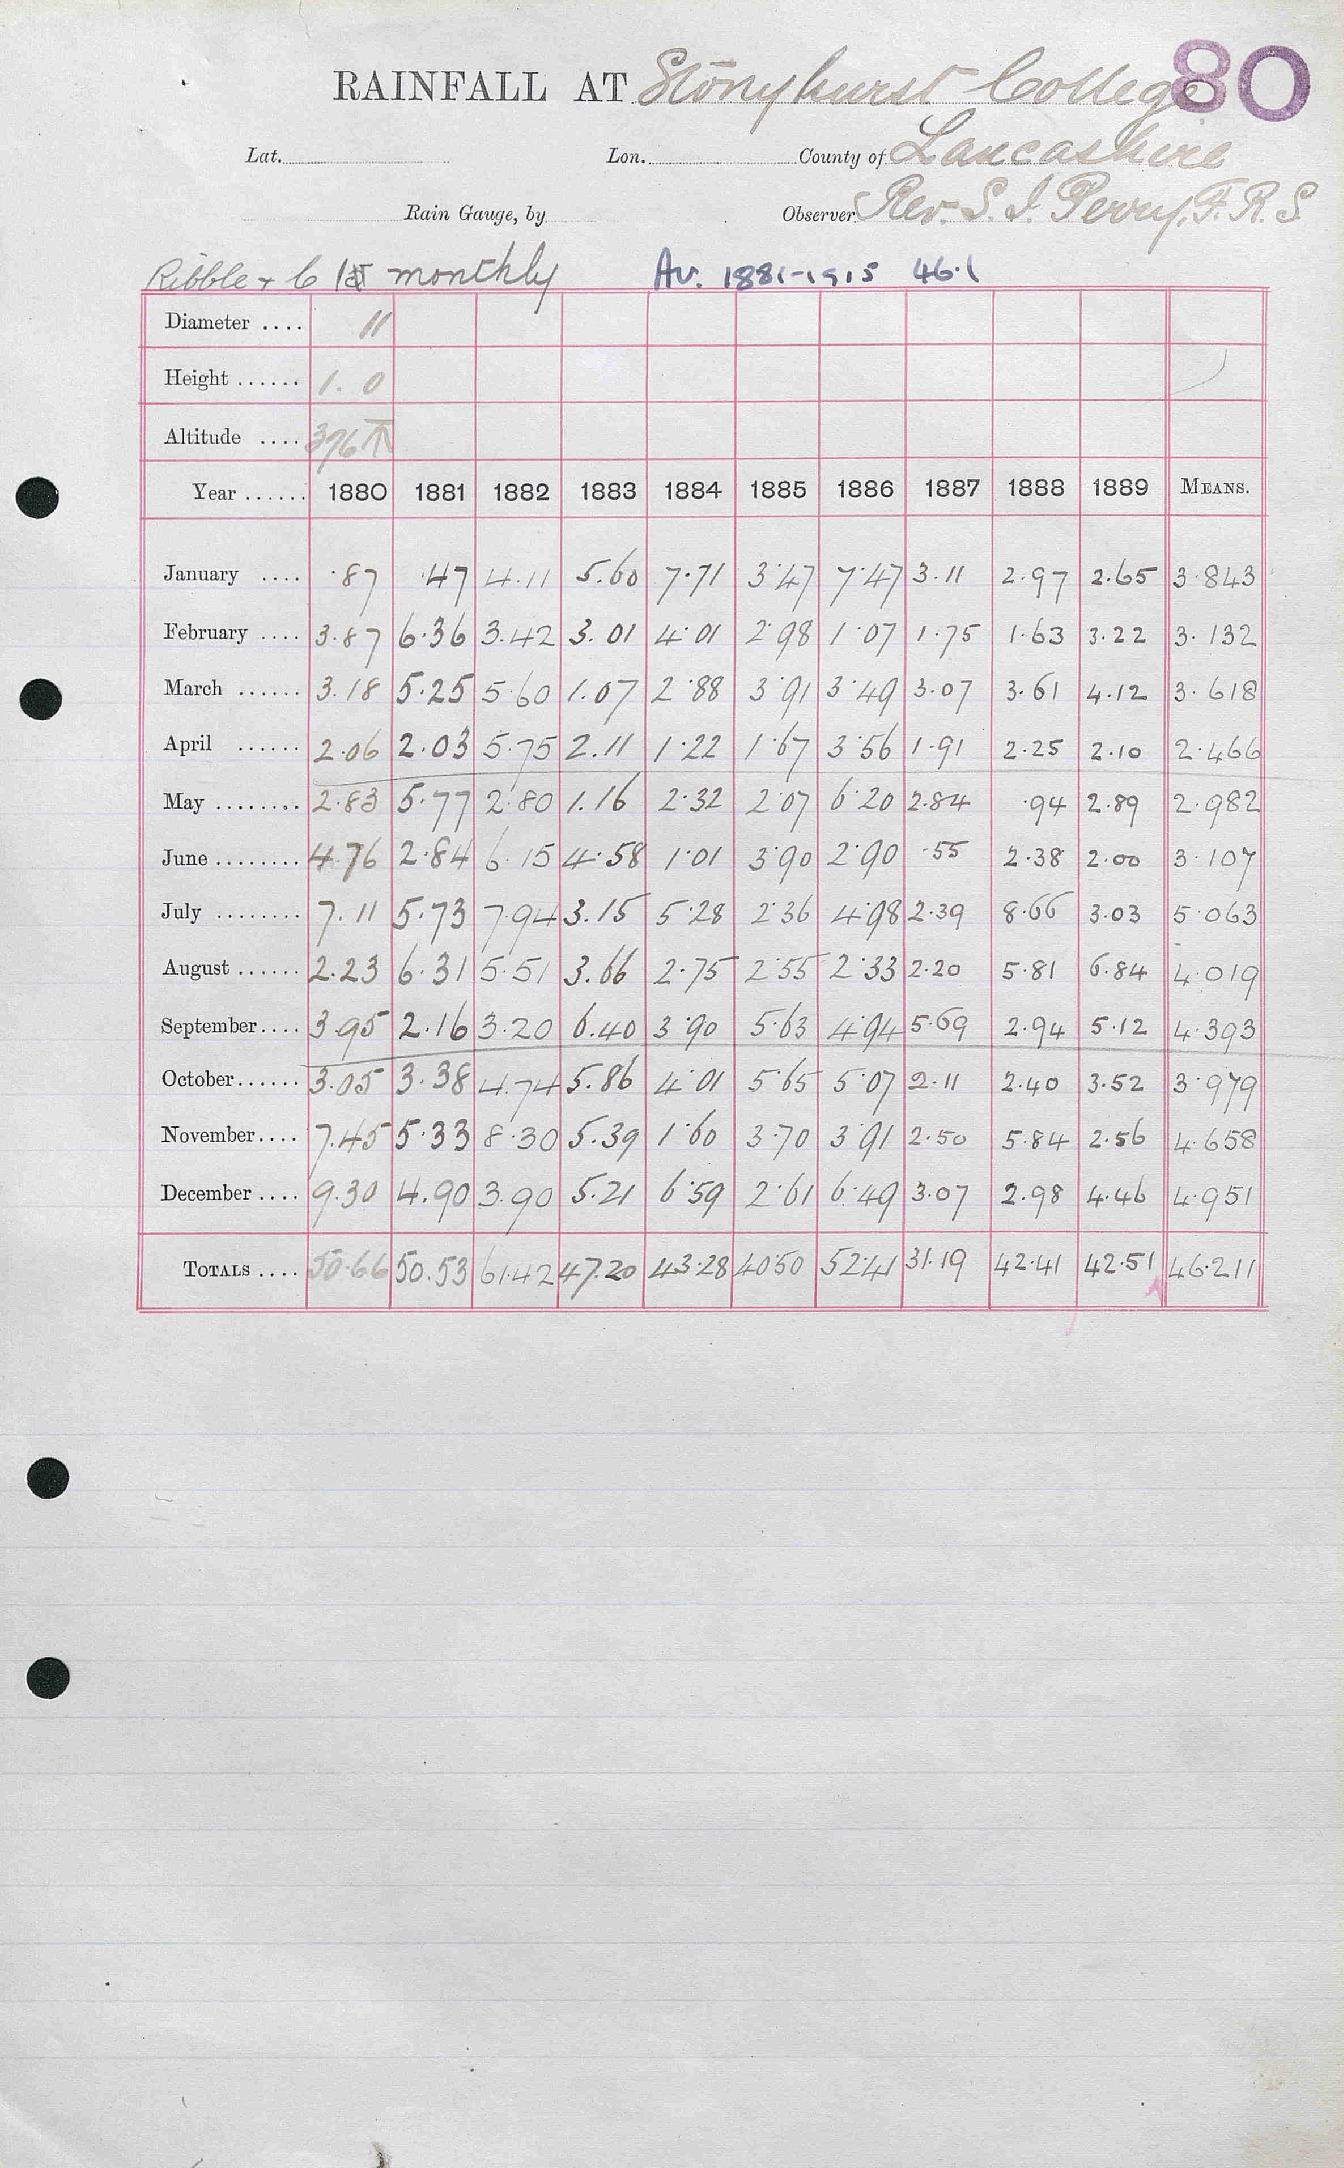 80
RAINFALL AT Stonyhurst College
Lat. Lon. County of Lancashire
Rain Gauge, by Observer Rev. S. J. Perry, F.R.S
Ribble + C monthly Av. 1881-1915 46.1
Diameter .... 11
Height ...... 1. 0
Altitude .... 376
Year ...... 1880 1881 1882 1883 1884 1885 1886 1887 1888 1889 MEANS.
January .... .87 .47 4.11 5.60 7.71 3.47 7.47 3.11 2.97 2.65 3.843
February .... 3.87 6.36 3.42 3.01 4.01 2.98 1.07 1.75 1.63 3.22 3.132
March ...... 3.18 5.25 5.60 1.07 2.88 3.91 3.49 3.07 3.61 4.12 3.618
April ...... 2.06 2.03 5.75 2.11 1.22 1.67 3.56 1.91 2.25 2.10 2.466
May ........ 2.83 5.77 2.80 1.16 2.32 2.07 6.20 2.84 .94 2.89 2.982
June ........ 4.76 2.84 6.15 4.58 1.01 3.90 2.90 .55 2.38 2.00 3.107
July ........ 7.11 5.73 7.94 3.15 5.28 2.36 4.98 2.39 8.66 3.03 5.063
August ...... 2.23 6.31 5.51 3.66 2.75 2.55 2.33 2.20 5.81 6.84 4.019
September.... 3.95 2.16 3.20 6.40 3.90 5.63 4.94 5.69 2.94 5.12 4.393
October...... 3.05 3.38 4.74 5.86 4.01 5.65 5.07 2.11 2.40 3.52 3.979
November.... 7.45 5.33 8.30 5.39 1.60 3.70 3.91 2.50 5.84 2.56 4.658
December .... 9.30 4.90 3.90 5.21 6.59 2.61 6.49 3.07 2.98 4.46 4.951
TOTALS .... 50.66 50.53 61.42 47.20 43.28 40.50 52.41 31.19 42.41 42.51 46.211